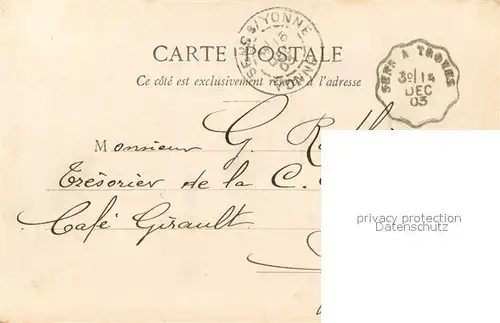 CARTE POSTALE
Ce côté est exclusivement réservé à l'adresse
SENS S/YONNE
YONNE
SENS A TROYES
3º/14
DEC
03
Monsieur G.
Trésorier de la C.
Café Girault
privacy protection
Datenschutz